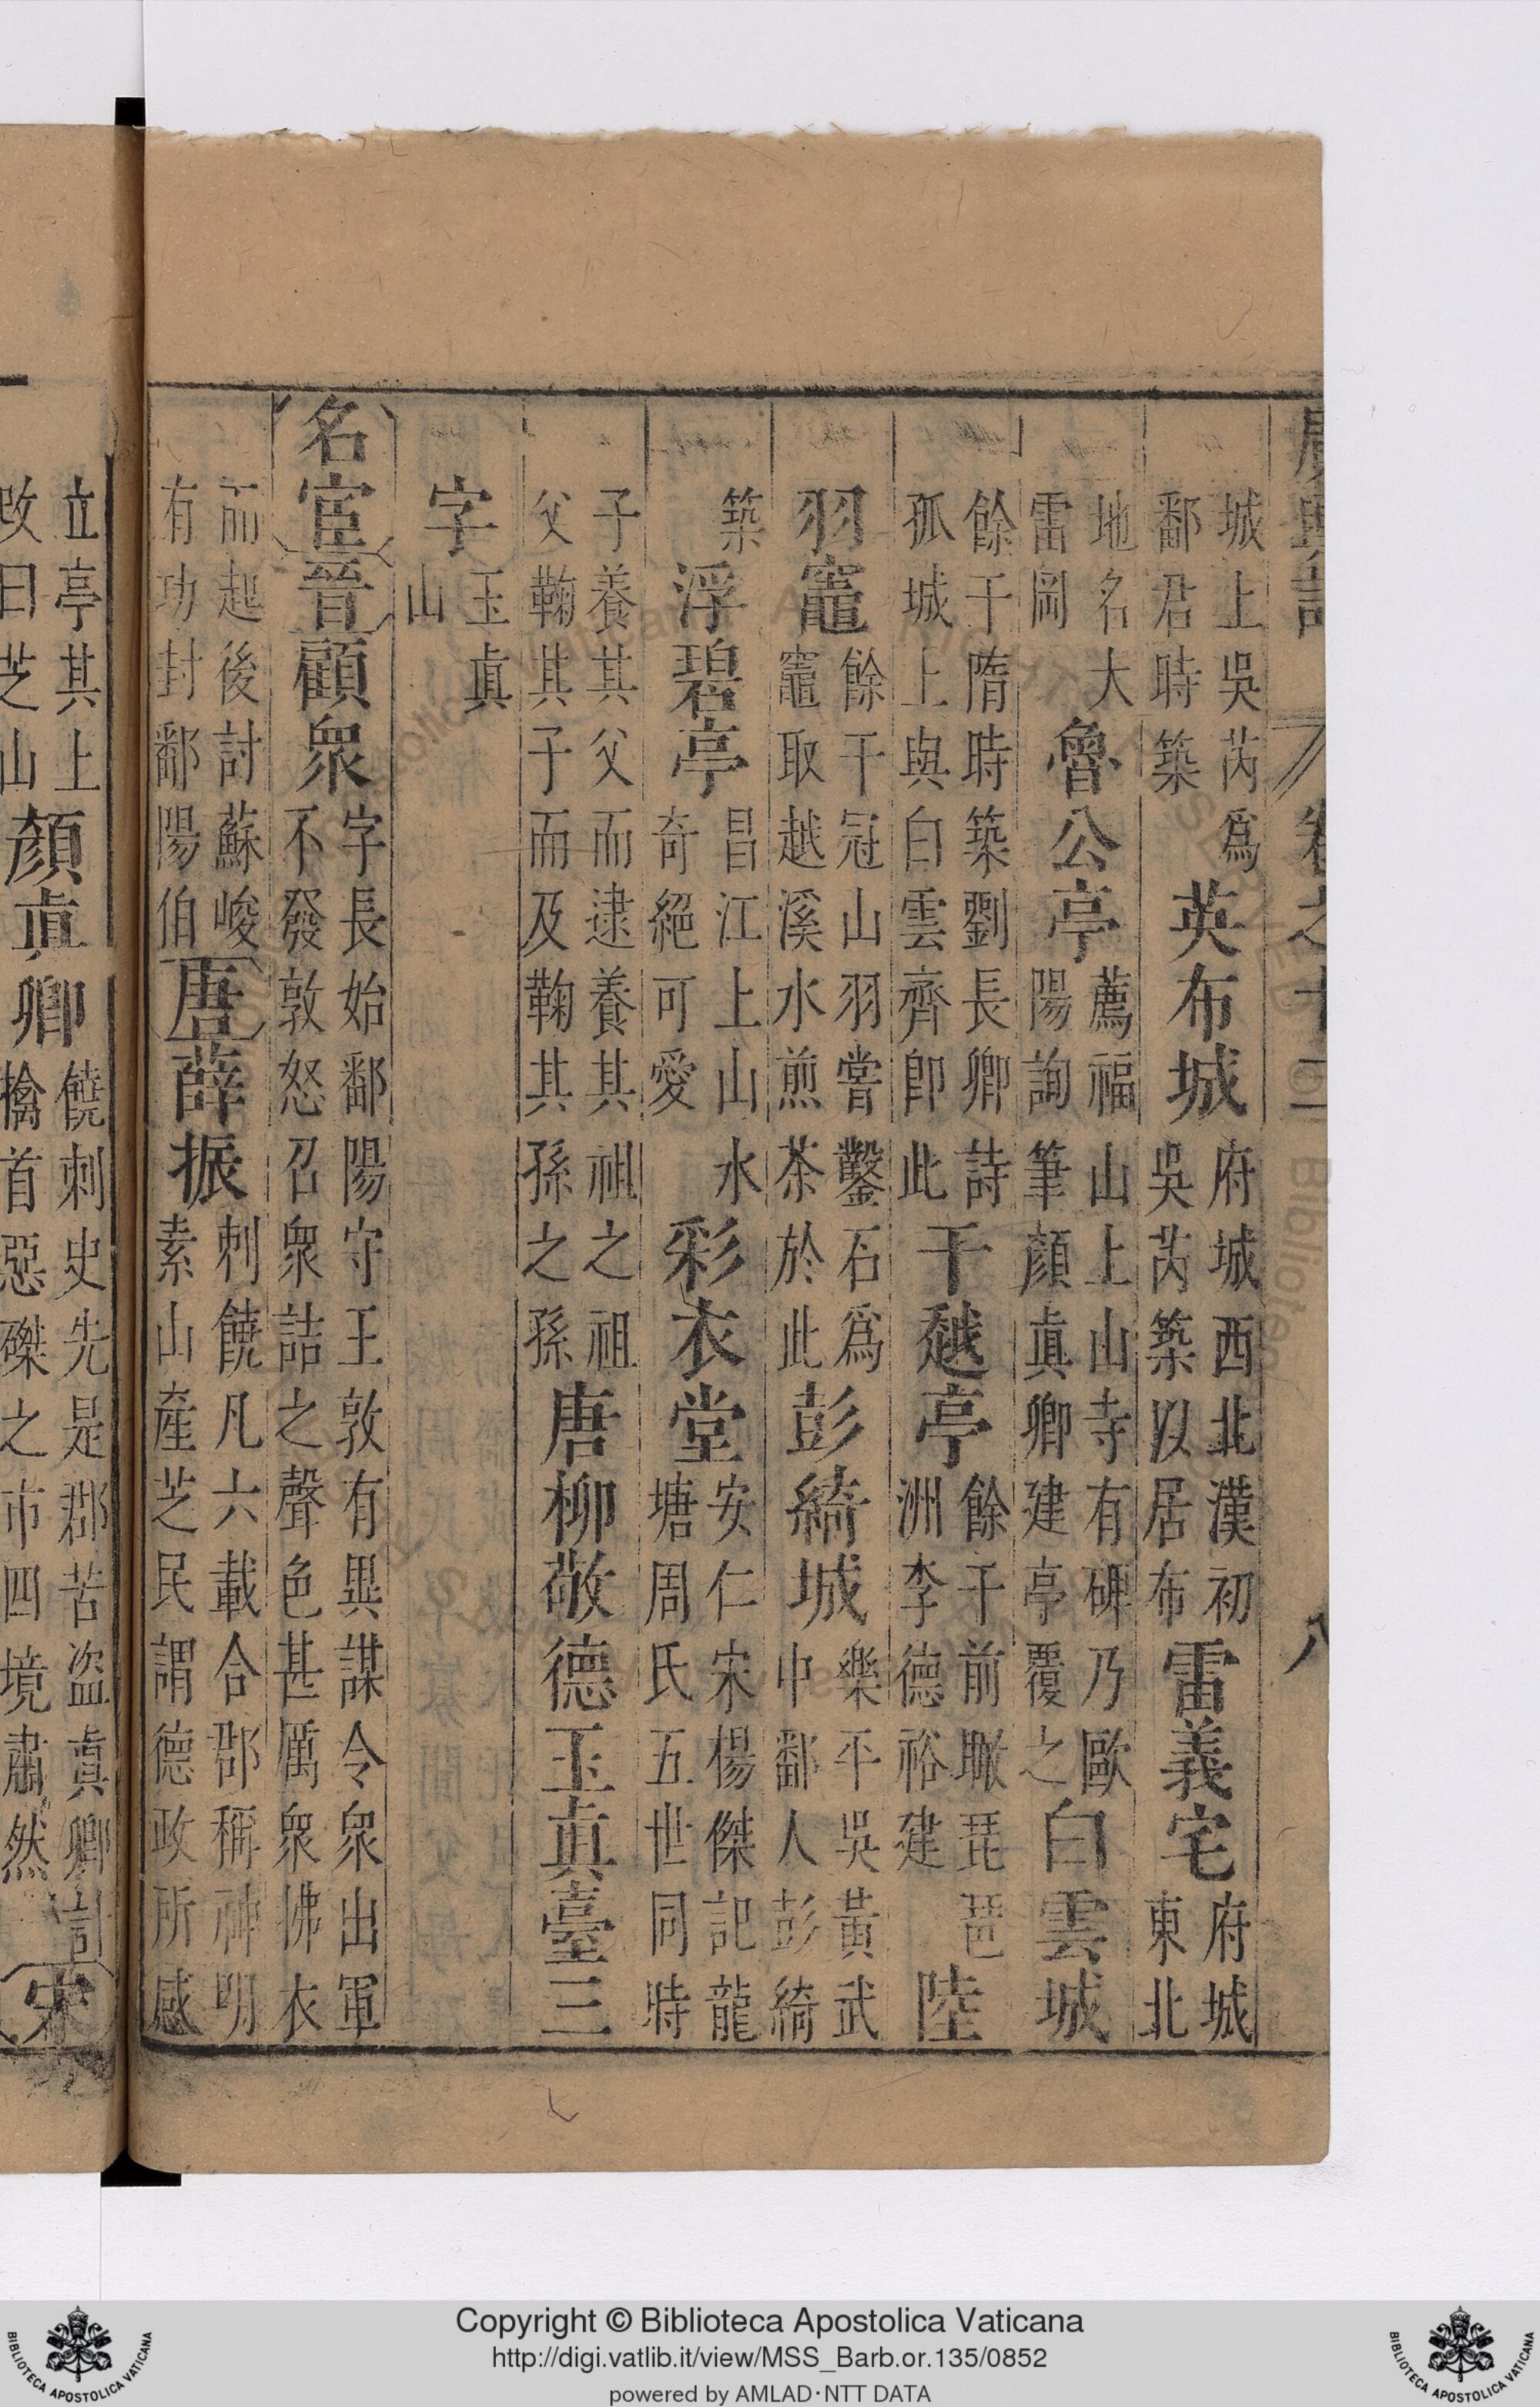 廣輿記 卷之十二 八
城上吳芮爲鄱君時築 英布城 府城西北漢初吳芮築以居布 雷義宅 府城東北
地名大雷岡 魯公亭 薦福山上山寺有碑乃歐陽詢筆顏真卿建亭覆之 白雲城
餘干隋時築劉長卿詩孤城上與白雲齊即此 干越亭 餘干前瞰琵琶洲李德裕建 陸
羽竈 餘干冠山羽嘗鑿石爲竈取越溪水煎茶於此 彭綺城 樂平吳黃武中鄱人彭綺
築 浮碧亭 昌江上山水奇絕可愛 彩衣堂 安仁宋楊傑記龍塘周氏五世同時
子養其父而逮養其祖之祖父鞠其子而及鞠其孫之孫 唐柳敬德玉真臺三
字 玉真山
名宦 晉 顧眾 字長始鄱陽守王敦有異謀令眾出軍不發敦怒召眾詰之聲色甚厲眾拂衣
而起後討蘇峻有功封鄱陽伯 唐 薛振 刺饒凡六載合郡稱神明素山產芝民謂德政所感
立亭其上改曰芝山 顏真卿 饒刺史先是郡苦盜真卿計擒首惡磔之市四境肅然 宋
Copyright © Biblioteca Apostolica Vaticana
http://digi.vatlib.it/view/MSS_Barb.or.135/0852
powered by AMLAD·NTT DATA
BIBLIOTECA APOSTOLICA VATICANA
BIBLIOTECA APOSTOLICA VATICANA